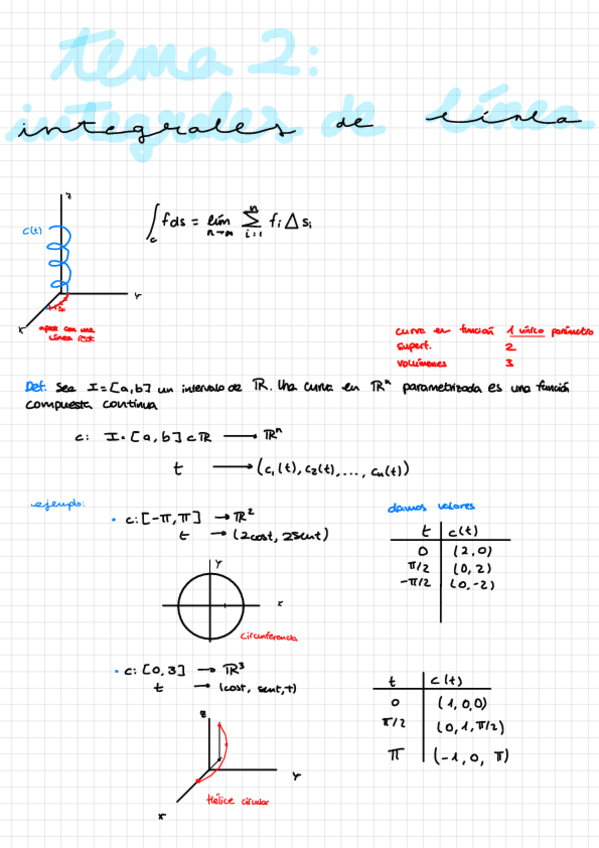 tema 2:
integrales de línea
integrales de línea
z
c(t)
∫_c fds = lím_{n→∞} Σ_{i=1}^{n} fi Δsi
Y
X
aprox con una
línea rect
curva en función 1 único parámetro
superf. 2
volúmenes 3
Def: Sea I=[a,b] un intervalo de ℝ. Una curva en ℝⁿ parametrizada es una función
compuesta continua
c: I=[a,b]⊂ℝ → ℝⁿ
t → (c₁(t), c₂(t), ..., cn(t))
ejemplo:
• c:[-π,π] → ℝ²
t → (2cost, 2sent)
damos valores
t c(t)
0 (2,0)
π/2 (0,2)
-π/2 (0,-2)
Y
X
circunferencia
• c:[0,3] → ℝ³
t → (cost, sent, t)
t c(t)
0 (1,0,0)
π/2 (0,1,π/2)
π (-1,0,π)
z
Y
X
Hélice circular